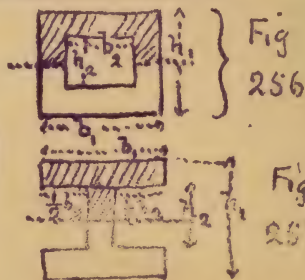 b 2
h 2
h 1
Fig
256
b 1
b 1
1/2 b 2
h 2
h 1
Fig
25